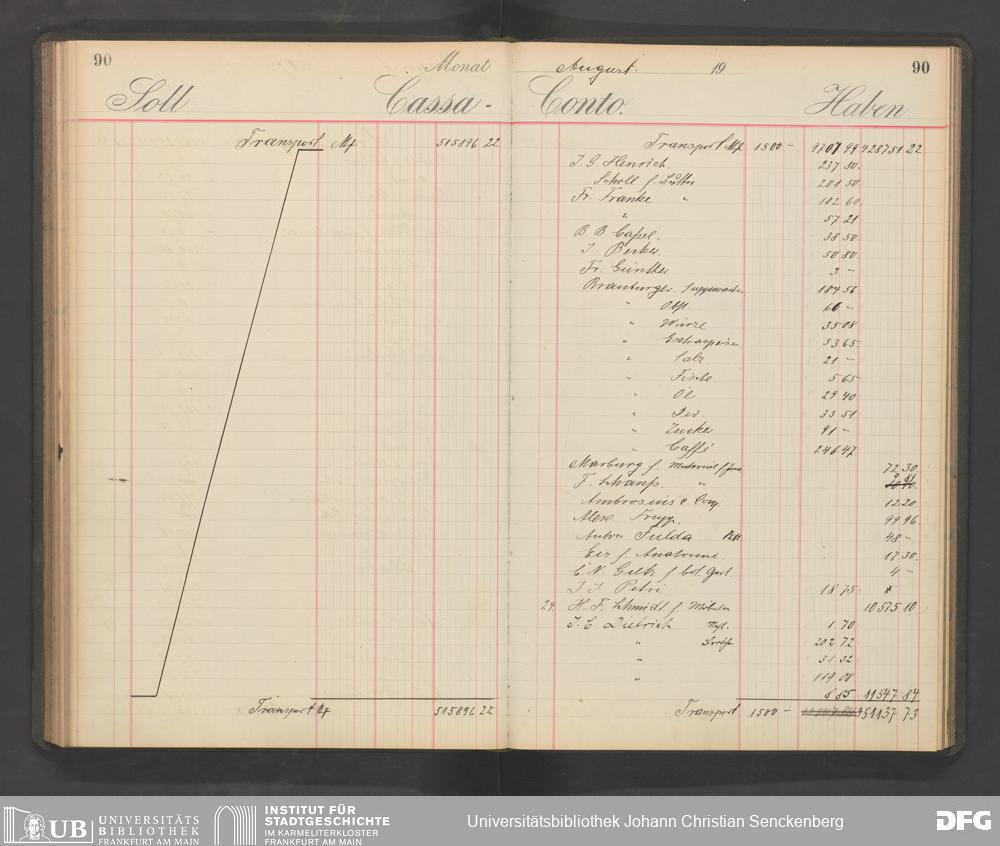 90
Monat August. 19
90
Soll Cassa - Conto. Haben
Transport Mk 515896 22
Transport Mk 1500 - 9707 99 428751 22
J. G. Henrich. 237 50.
Scholl f. Butter 201 50.
Fr. Franke " 102 60.
" 57 21
B. B. Cassel. 38 50.
J. Becker. 50 80.
Fr. Günther 3 -
Suppenwaaren 184 56
" Obst. -
" Würze 35 08
" Extraspeisen 53 65.
" Salz 21 -
" Fische 5 65
" Öl 29 40
" 33 51
" Zucker 91 -
" Caffé 246 47
Marburg f. 72 30.
F. "
Ambrosius & Comp. 12 20.
Alex. 99 96.
Anton Fulda 48 -
Eis f. Anatomie. 17 30.
C. N. f. bot. Gart. 4 -
J. J. Petri 18 75
29. H. F. Schmidt f. Mobilien 10575 10
J. C. Dietrich 1 70
" 202 72
" 31 32
" 119 08
8 85 11547 84
Transport Mk 515896 22
Transport 1500 - 451137 73
UB
UNIVERSITÄTS
BIBLIOTHEK
FRANKFURT AM MAIN
INSTITUT FÜR
STADTGESCHICHTE
IM KARMELITERKLOSTER
FRANKFURT AM MAIN
Universitätsbibliothek Johann Christian Senckenberg
DFG